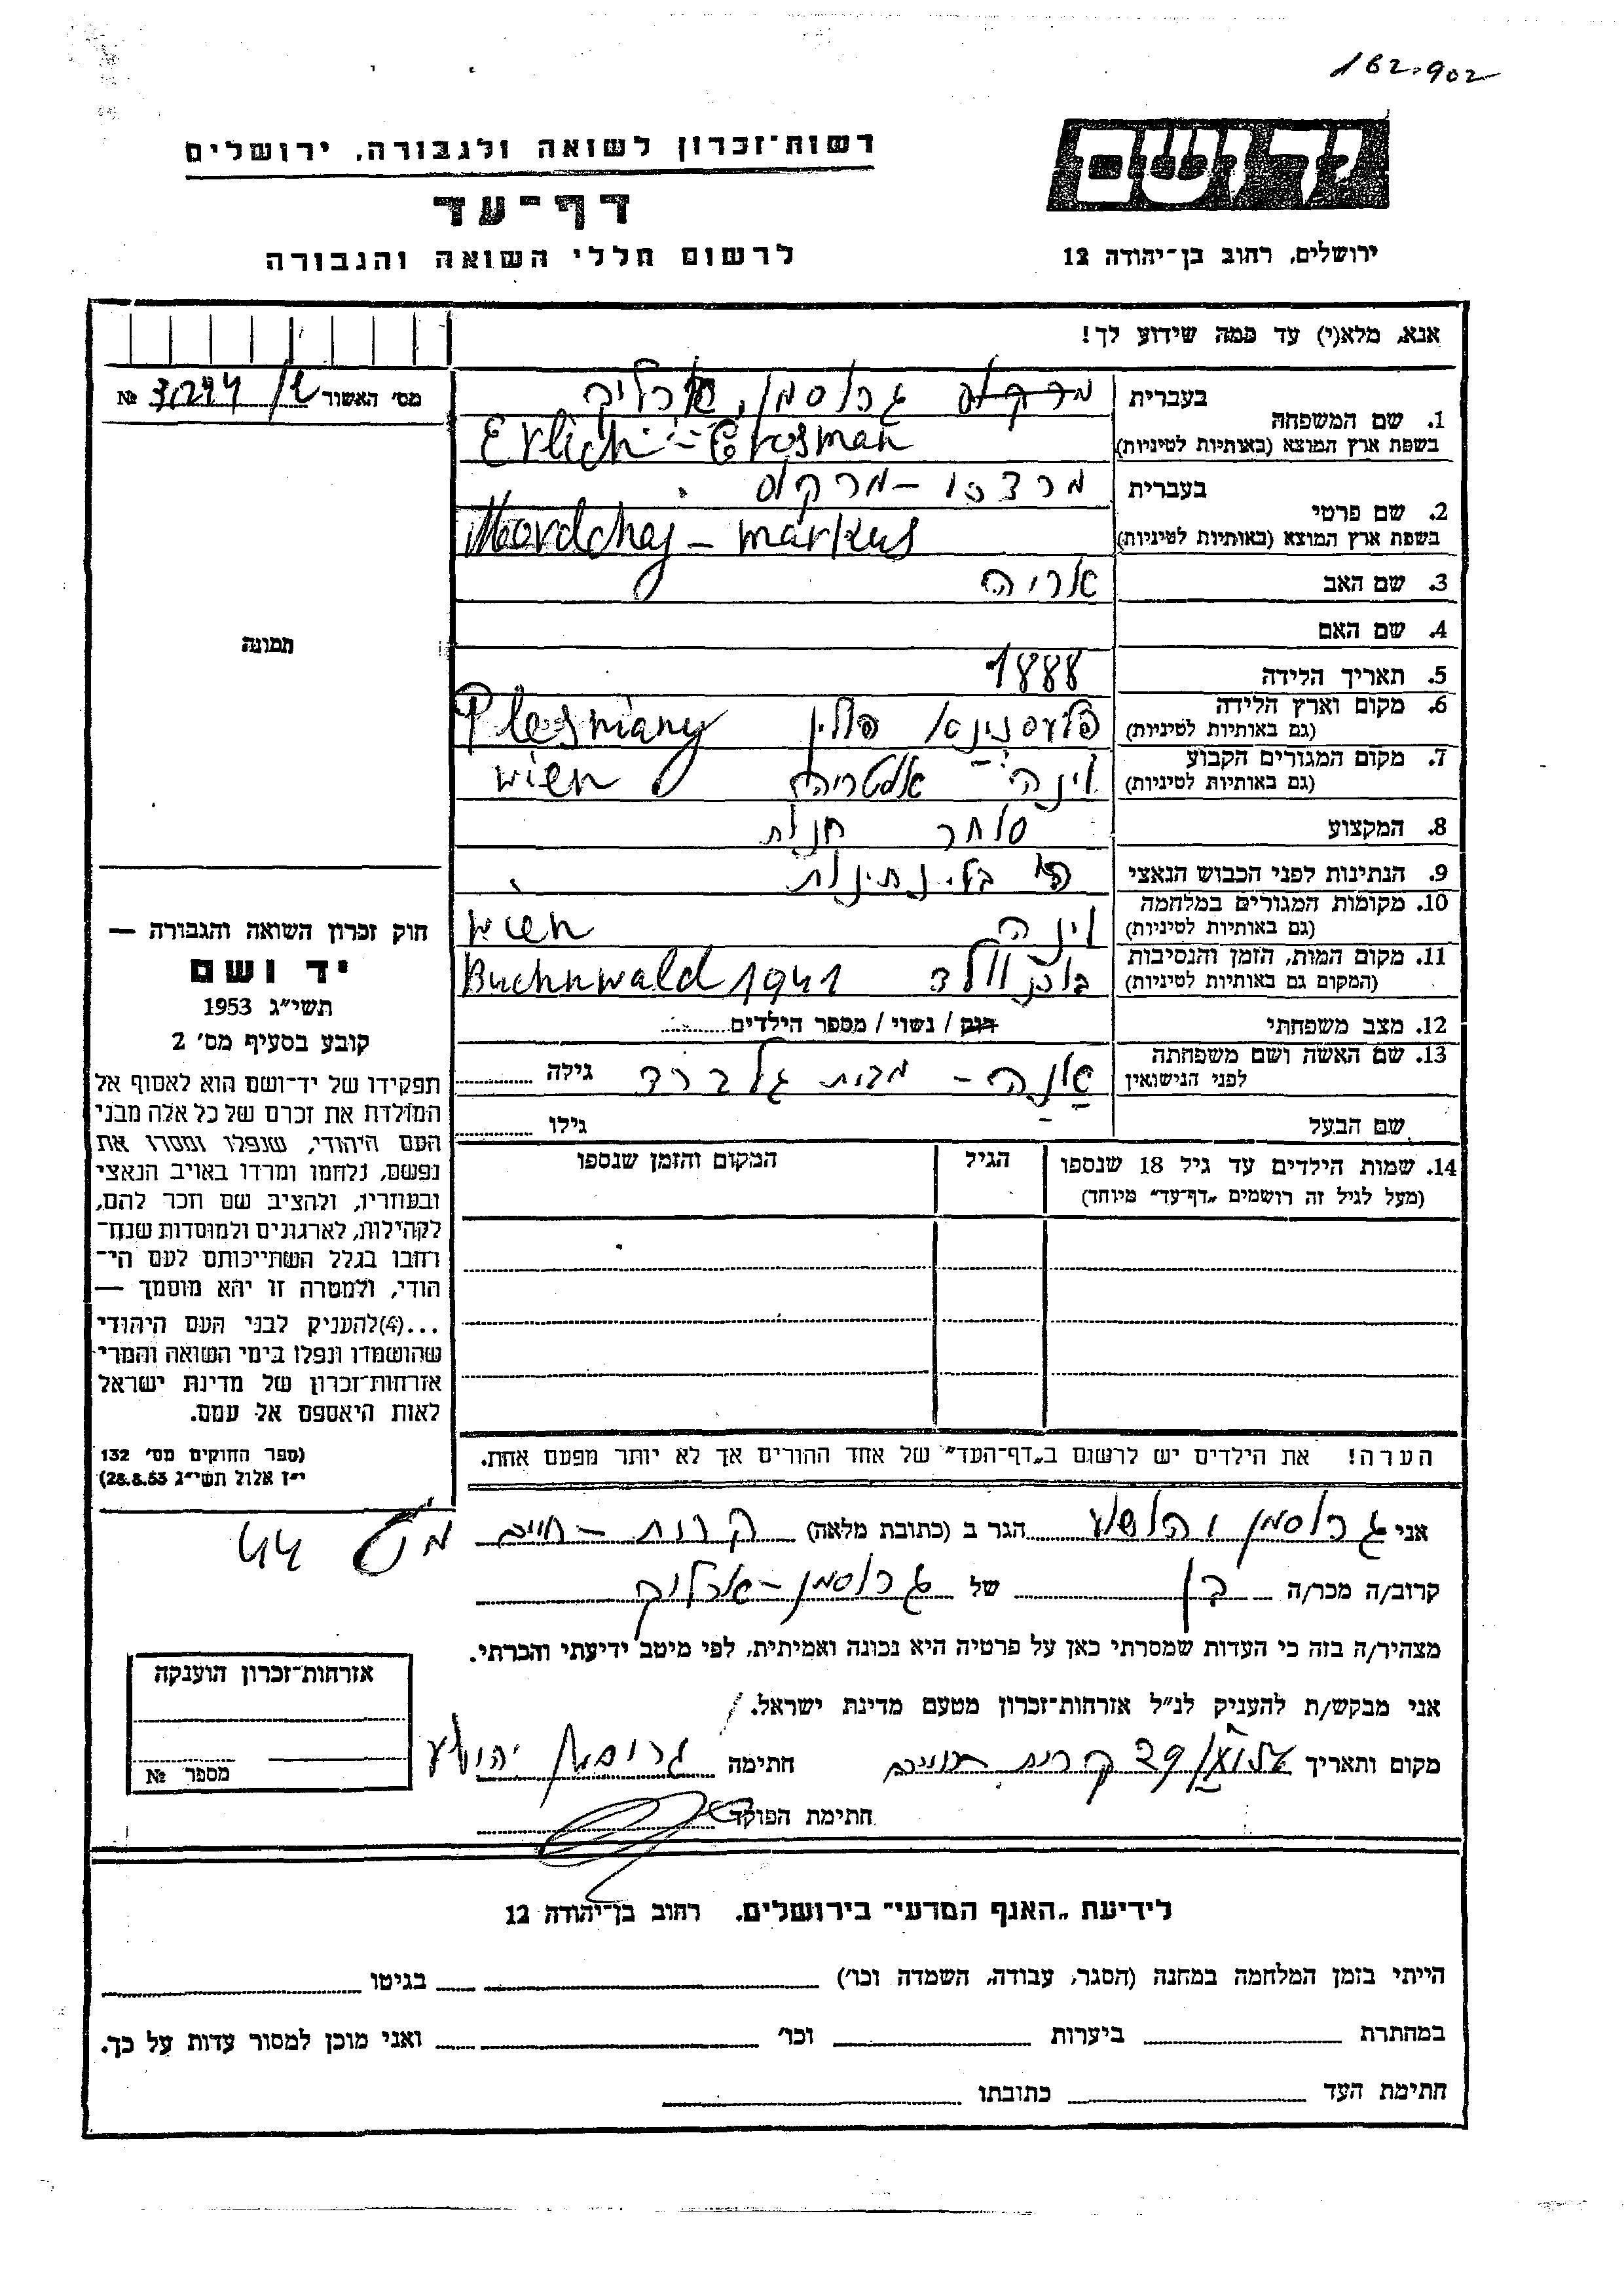 162.902
יד ושם
ירושלים, רחוב בן־יהודה 12
רשות־זכרון לשואה ולגבורה, ירושלים
דף־עד
לרשום חללי השואה והגבורה
אנא, מלא(י) עד כמה שידוע לך!
מס' האשור №
1. שם המשפחה
בעברית מרקוס גרוסמן, ארליך
בשפת ארץ המוצא (באותיות לטיניות) Erlich - Grosman
2. שם פרטי
בעברית מרדכי - מרקוס
בשפת ארץ המוצא (באותיות לטיניות) Mordchaj - markus
3. שם האב אריה
4. שם האם
5. תאריך הלידה 1888
6. מקום וארץ הלידה
(גם באותיות לטיניות) פולין Plesniany
7. מקום המגורים הקבוע
(גם באותיות לטיניות) וינה אוסטריה wien
8. המקצוע סוחר חנות
9. הנתינות לפני הכבוש הנאצי בלי נתינות
10. מקומות המגורים במלחמה
(גם באותיות לטיניות) וינה wien
11. מקום המות, הזמן והנסיבות
(המקום גם באותיות לטיניות) בוכנוולד Buchnwald 1941
12. מצב משפחתי רווק / נשוי / מספר הילדים
13. שם האשה ושם משפחתה
לפני הנישואין מבית גלברד גילה
שם הבעל גילו
14. שמות הילדים עד גיל 18 שנספו הגיל המקום והזמן שנספו
(מעל לגיל זה רושמים „דף־עד" מיוחד)
הערה! את הילדים יש לרשום ב„דף־העד" של אחד ההורים אך לא יותר מפעם אחת.
תמונה
חוק זכרון השואה והגבורה —
יד ושם
תשי"ג 1953
קובע בסעיף מס' 2
תפקידו של יד־ושם הוא לאסוף אל
המולדת את זכרם של כל אלה מבני
העם היהודי, שנפלו ומסרו את
נפשם, נלחמו ומרדו באויב הנאצי
ובעוזריו, ולהציב שם וזכר להם,
לקהילות, לארגונים ולמוסדות שנח־
רבו בגלל השתייכותם לעם הי־
הודי, ולמטרה זו יהא מוסמך —
...(4)להעניק לבני העם היהודי
שהושמדו ונפלו בימי השואה והמרי
אזרחות־זכרון של מדינת ישראל
לאות היאספם אל עמם.
(ספר החוקים מס' 132
י"ז אלול תשי"ג 28.8.53)
אני גרוסמן יהושע הגר ב (כתובת מלאה) קרית - חיים 44
קרוב/ה מכר/ה בן של גרוסמן - ארליך
מצהיר/ה בזה כי העדות שמסרתי כאן על פרטיה היא נכונה ואמיתית, לפי מיטב ידיעתי והכרתי.
אני מבקש/ת להעניק לנ"ל אזרחות־זכרון מטעם מדינת ישראל.
מקום ותאריך קרית חיים חתימה גרוסמן יהושע
חתימת הפוקד
אזרחות־זכרון הוענקה
מספר №
לידיעת „האגף המדעי" בירושלים. רחוב בן־יהודה 12
הייתי בזמן המלחמה במחנה (הסגר, עבודה, השמדה וכו') בגיטו
במחתרת ביערות וכו' ואני מוכן למסור עדות על כך.
חתימת העד כתובתו